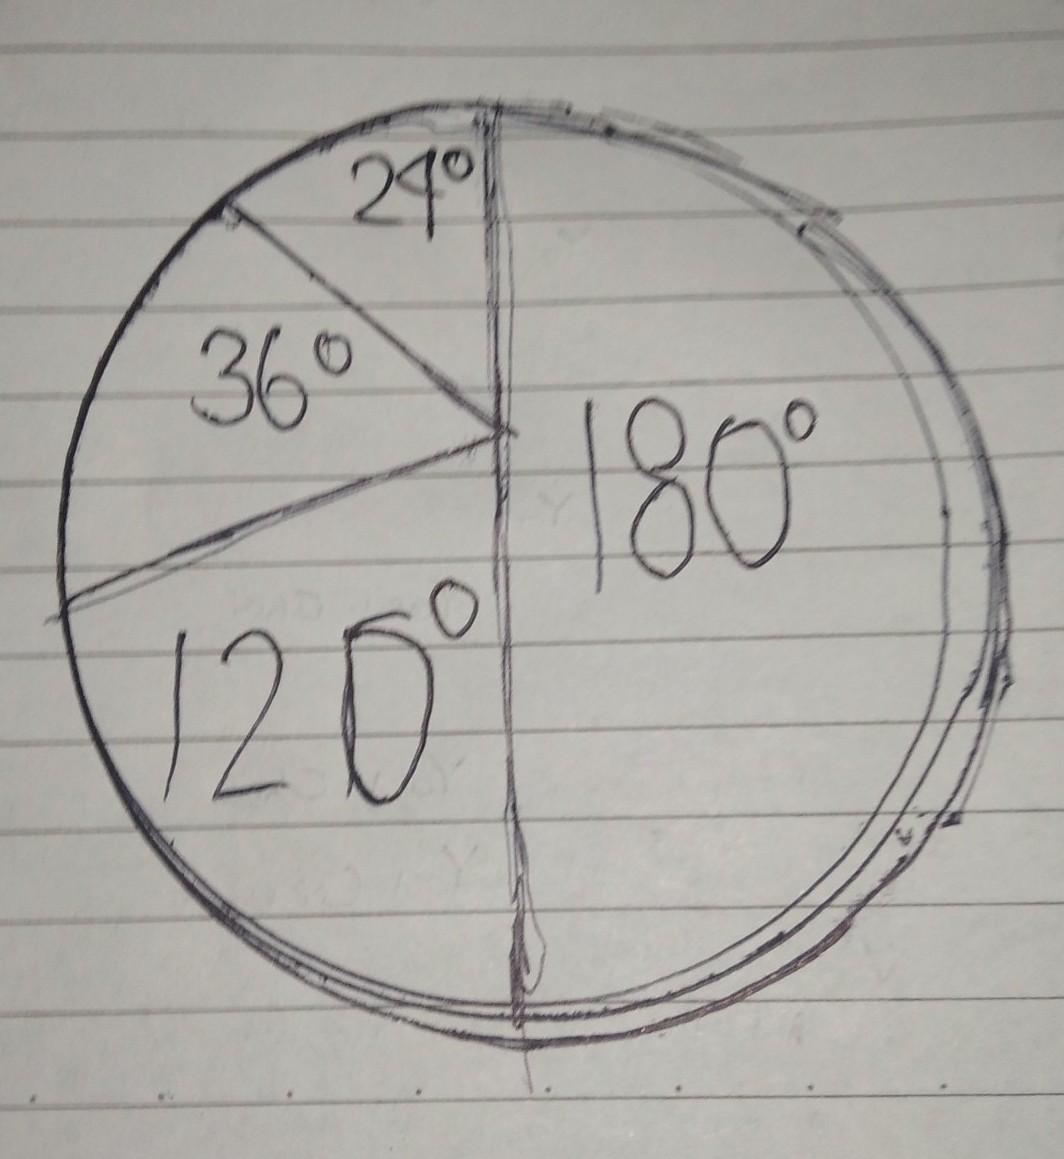 24°
36°
180°
120°